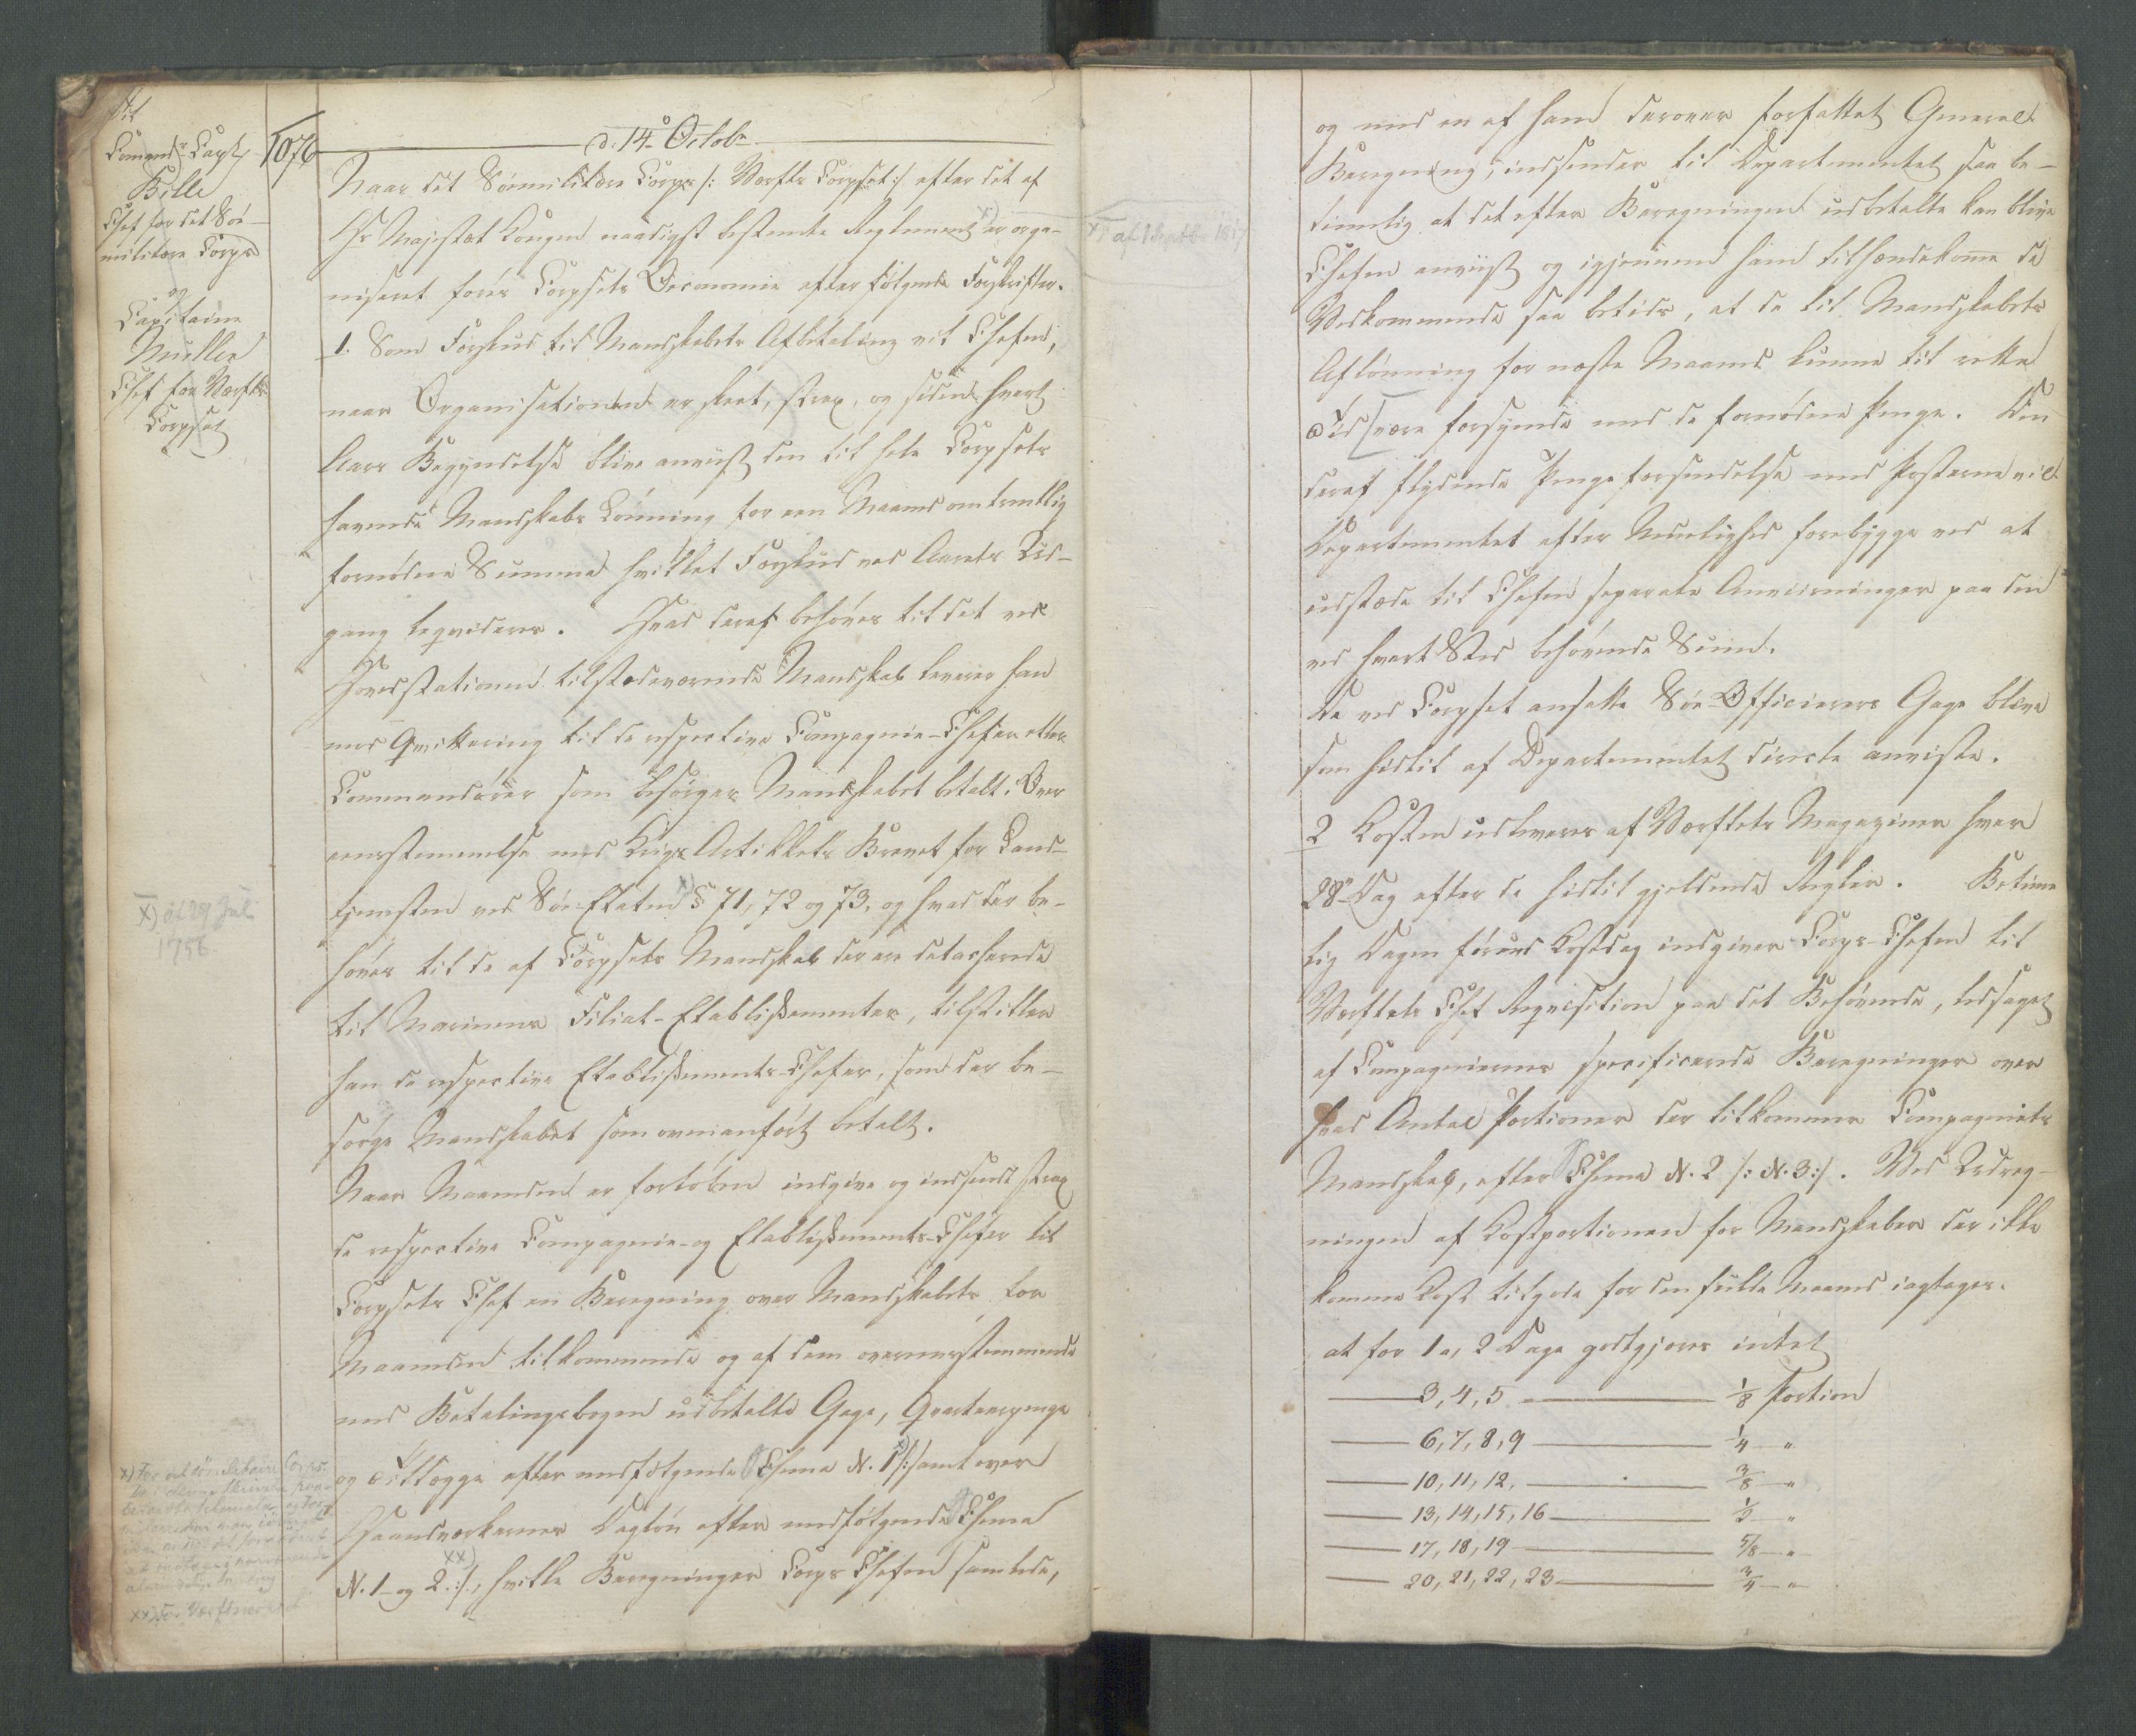 Til
Comand: Capt
Bille
Chef for det Söe-
militære Corps
og
Capitaine
Müller
Chef for Værfts
Corpset
1076
d. 14de Octobr
Naar det Sömilitære Corps /: Værfts Corpset :/ efter det af
Hs Majestæt Kongen naadigst bestemte Reglement x) er orga-
niseret föres Corpsets Oeconomie efter fölgende Forskrifter.
1. Som Forskud til Mandskabets Afbetaling vil Chefen,
naar Organisationen er skeet, strax, og siden hvert
Aars Begyndelse blive anviist den til hele Corpsets
havende Mandskabs Lönning for een Maaned omtrentlig
fornödne Summa hvilket Forskud ved Aarets Ud-
gang liqvideres. Hvad deraf behöves til det ved
Hovedstationen tilstedeværende Mandskab leverer han
mod Qvittering til de respective Compagnie-Chefer eller
Commandörer som besörger Mandskabet betalt. Over
eensstemmelse med Krigs Artikkels Brevet for Land-
tjenesten ved Söe-Etaten x) § 71, 72 og 73, og hvad der be-
höves til de af Corpsets Mandskab der ere detacherede
til Marinens Filial-Etablissementer, tilstiller
han de respective Etablissements-Chefer, som der be-
sörge Mandskabet som ovenanfört betalt.
Naar Maaneden er forlöben indgive og indsende strax
de respective Compagnie- og Etablissements-Chefer til
Corpsets Chef en Beregning over Mandskabets for
Maaneden tilkommende og af dem overeensstemmende
med Betalingsbogen udbetalte Gage, Qvarteerpenge
og Tillægge efter medfölgende Schema N. 1 x) /: samt over
Haandværkernes Daglön efter medfölgende Schema
N. 1 og 2 :/ xx), hvilke Beregninger Corps Chefen samlede,
x) af 29 Juli
1756
x) For det sömilitaire Corps.
xx) For Værftscorpset
x) af 1 Septbr 1817
og med en af ham derover forfattet General
Beregning, indsender til Departementet saa be-
timelig at det efter Beregningen udbetalte kan blive
Chefen anviist og igjennem ham tilhændekomme de
Vedkommende saa betids, at de til Mandskabets
Aflönning for næste Maaned kunne til rette
Tid være forsynede med de fornödne Penge. Den
deraf flydende Penge forsendelse med Posterne vil
Departementet efter Muelighed forebygge ved at
udstæde til Chefen separate Anviisninger paa den
ved hvert Sted behövende Sum.
De ved Corpset ansatte Söe-Officierers Gage blive
som hidtil af Departementet directe anviste.
2 Kosten udleveres af Værftets Magaziner hver
28de Dag efter de hidtil gjeldende Regler. Betime
lig Dagen förend Kostdag indgiver Corps-Chefen til
Værftets Chef Reqvisition paa det Behövende, ledsaget
af Compagniernes specificerede Beregninger over
hvad Antal Portioner der tilkommer Compagniets
Mandskab, efter Schema N. 2 /: N. 3 :/. Ved Udreg-
ningen af Kostportionen for Mandskaber der ikke
komme Kost tilgode for den fulde Maaned iagtages.
at for 1 a, 2 Dage godtgjöres intet
— 3, 4, 5 — 1/8 Portion
— 6, 7, 8, 9 — 1/4 "
— 10, 11, 12, — 3/8 "
— 13, 14, 15, 16 — 1/2 "
— 17, 18, 19 — 5/8 "
— 20, 21, 22, 23 — 3/4 "